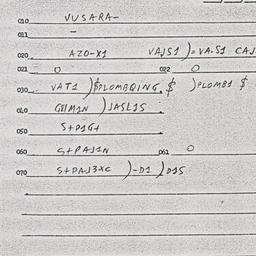 010 VUSARA-
011 -
020 AZO-X1 VAJS1 )=VA.S1 CAJ
021 0 022 0
030 VAT1 )$PLOMBQING. $ )PLOMB1 $
040 )JASL1S
050 S+P1G+
060 S+PAJ1N 061 0
070 S+PAJ3XC )-D1 )D1S